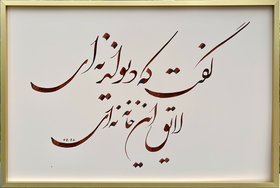 گفت که دیوانه نه‌ای
لایق این خانه نه‌ای